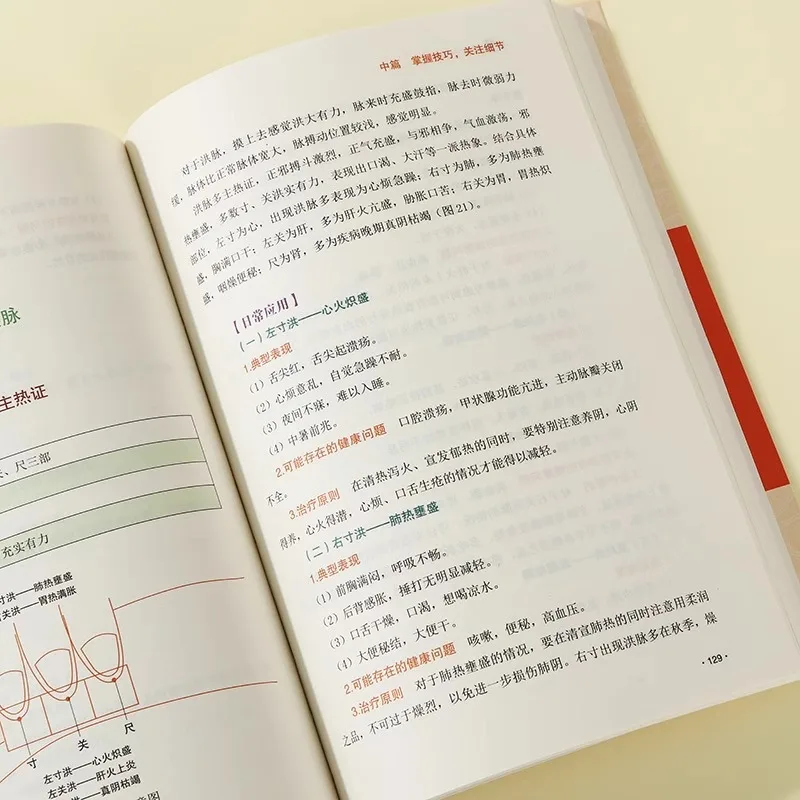 脉
主热证
、尺三部
充实有力
寸洪——肺热壅盛
关洪——胃热满胀
寸 关 尺
左寸洪——心火炽盛
左关洪——肝火上炎
——真阴枯竭
意图
中篇 掌握技巧，关注细节
对于洪脉，摸上去感觉洪大有力，脉来时充盛鼓指，脉去时微弱力
缓，脉体比正常脉体宽大，脉搏动位置较浅，感觉明显。
洪脉多主热证，正邪搏斗激烈，正气充盛，与邪相争，气血激荡，邪
热壅盛，多数寸、关洪实有力，表现出口渴、大汗等一派热象。结合具体
部位，左寸为心，出现洪脉多表现为心烦急躁；右寸为肺，多为肺热壅
盛，胸满口干；左关为肝，多为肝火亢盛，胁胀口苦；右关为胃，胃热炽
盛，咽燥便秘；尺为肾，多为疾病晚期真阴枯竭（图21）。
【日常应用】
（一）左寸洪——心火炽盛
1.典型表现
（1）舌尖红，舌尖起溃疡。
（2）心烦意乱，自觉急躁不耐。
（3）夜间不寐，难以入睡。
（4）中暑前兆。
2.可能存在的健康问题 口腔溃疡，甲状腺功能亢进，主动脉瓣关闭
不全。
3.治疗原则 在清热泻火、宣发郁热的同时，要特别注意养阴，心阴
得养，心火得潜，心烦、口舌生疮的情况才能得以减轻。
（二）右寸洪——肺热壅盛
1.典型表现
（1）前胸满闷，呼吸不畅。
（2）后背感胀，捶打无明显减轻。
（3）口舌干燥，口渴，想喝凉水。
（4）大便秘结，大便干。
2.可能存在的健康问题 咳嗽，便秘，高血压。
3.治疗原则 对于肺热壅盛的情况，要在清宣肺热的同时注意用柔润
之品，不可过于燥烈，以免进一步损伤肺阴。右寸出现洪脉多在秋季，燥
·129·